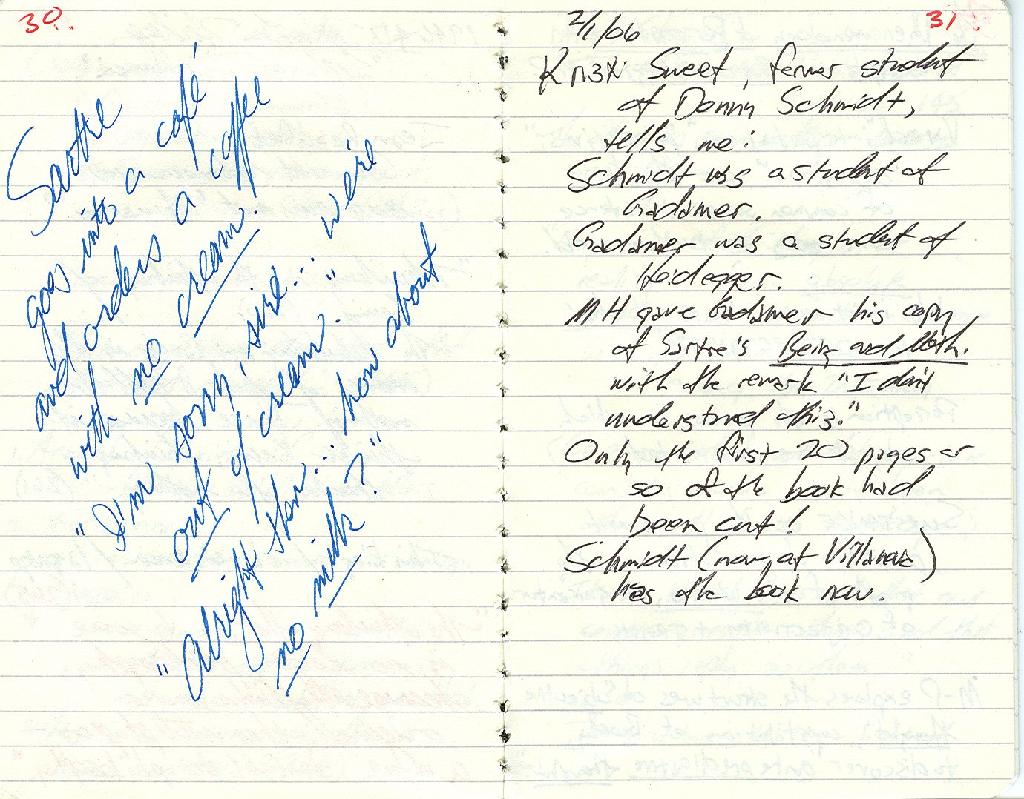 30.
Sartre
goes into a café
and orders a coffee
with no cream.
"I'm sorry, sire... we're
out of cream."
"Alright then... how about
no milk?"
31
2/1/06
Sweet, former student
of Danny Schmidt,
tells me:
Schmidt was a student of
Gadamer.
Gadamer was a student of
Heidegger.
MH gave Gadamer his copy
of Sartre's Being and Noth.
with the remark "I don't
understand this."
Only the first 20 pages or
so of the book had
been cut!
Schmidt (now at Villanova)
has the book now.